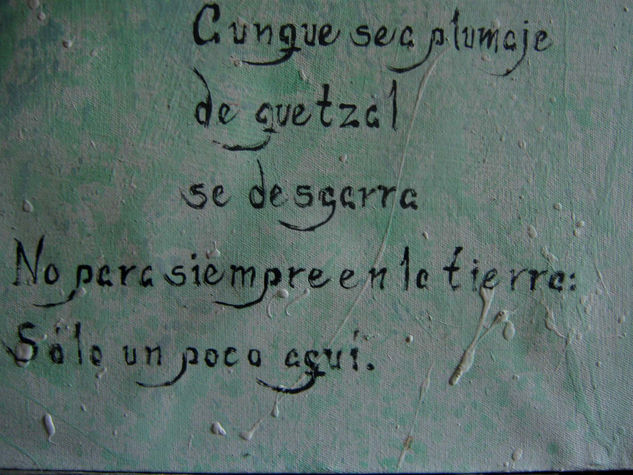 Aunque sea plumaje
de quetzal
se desgarra
No para siempre en la tierra:
Sólo un poco aquí.